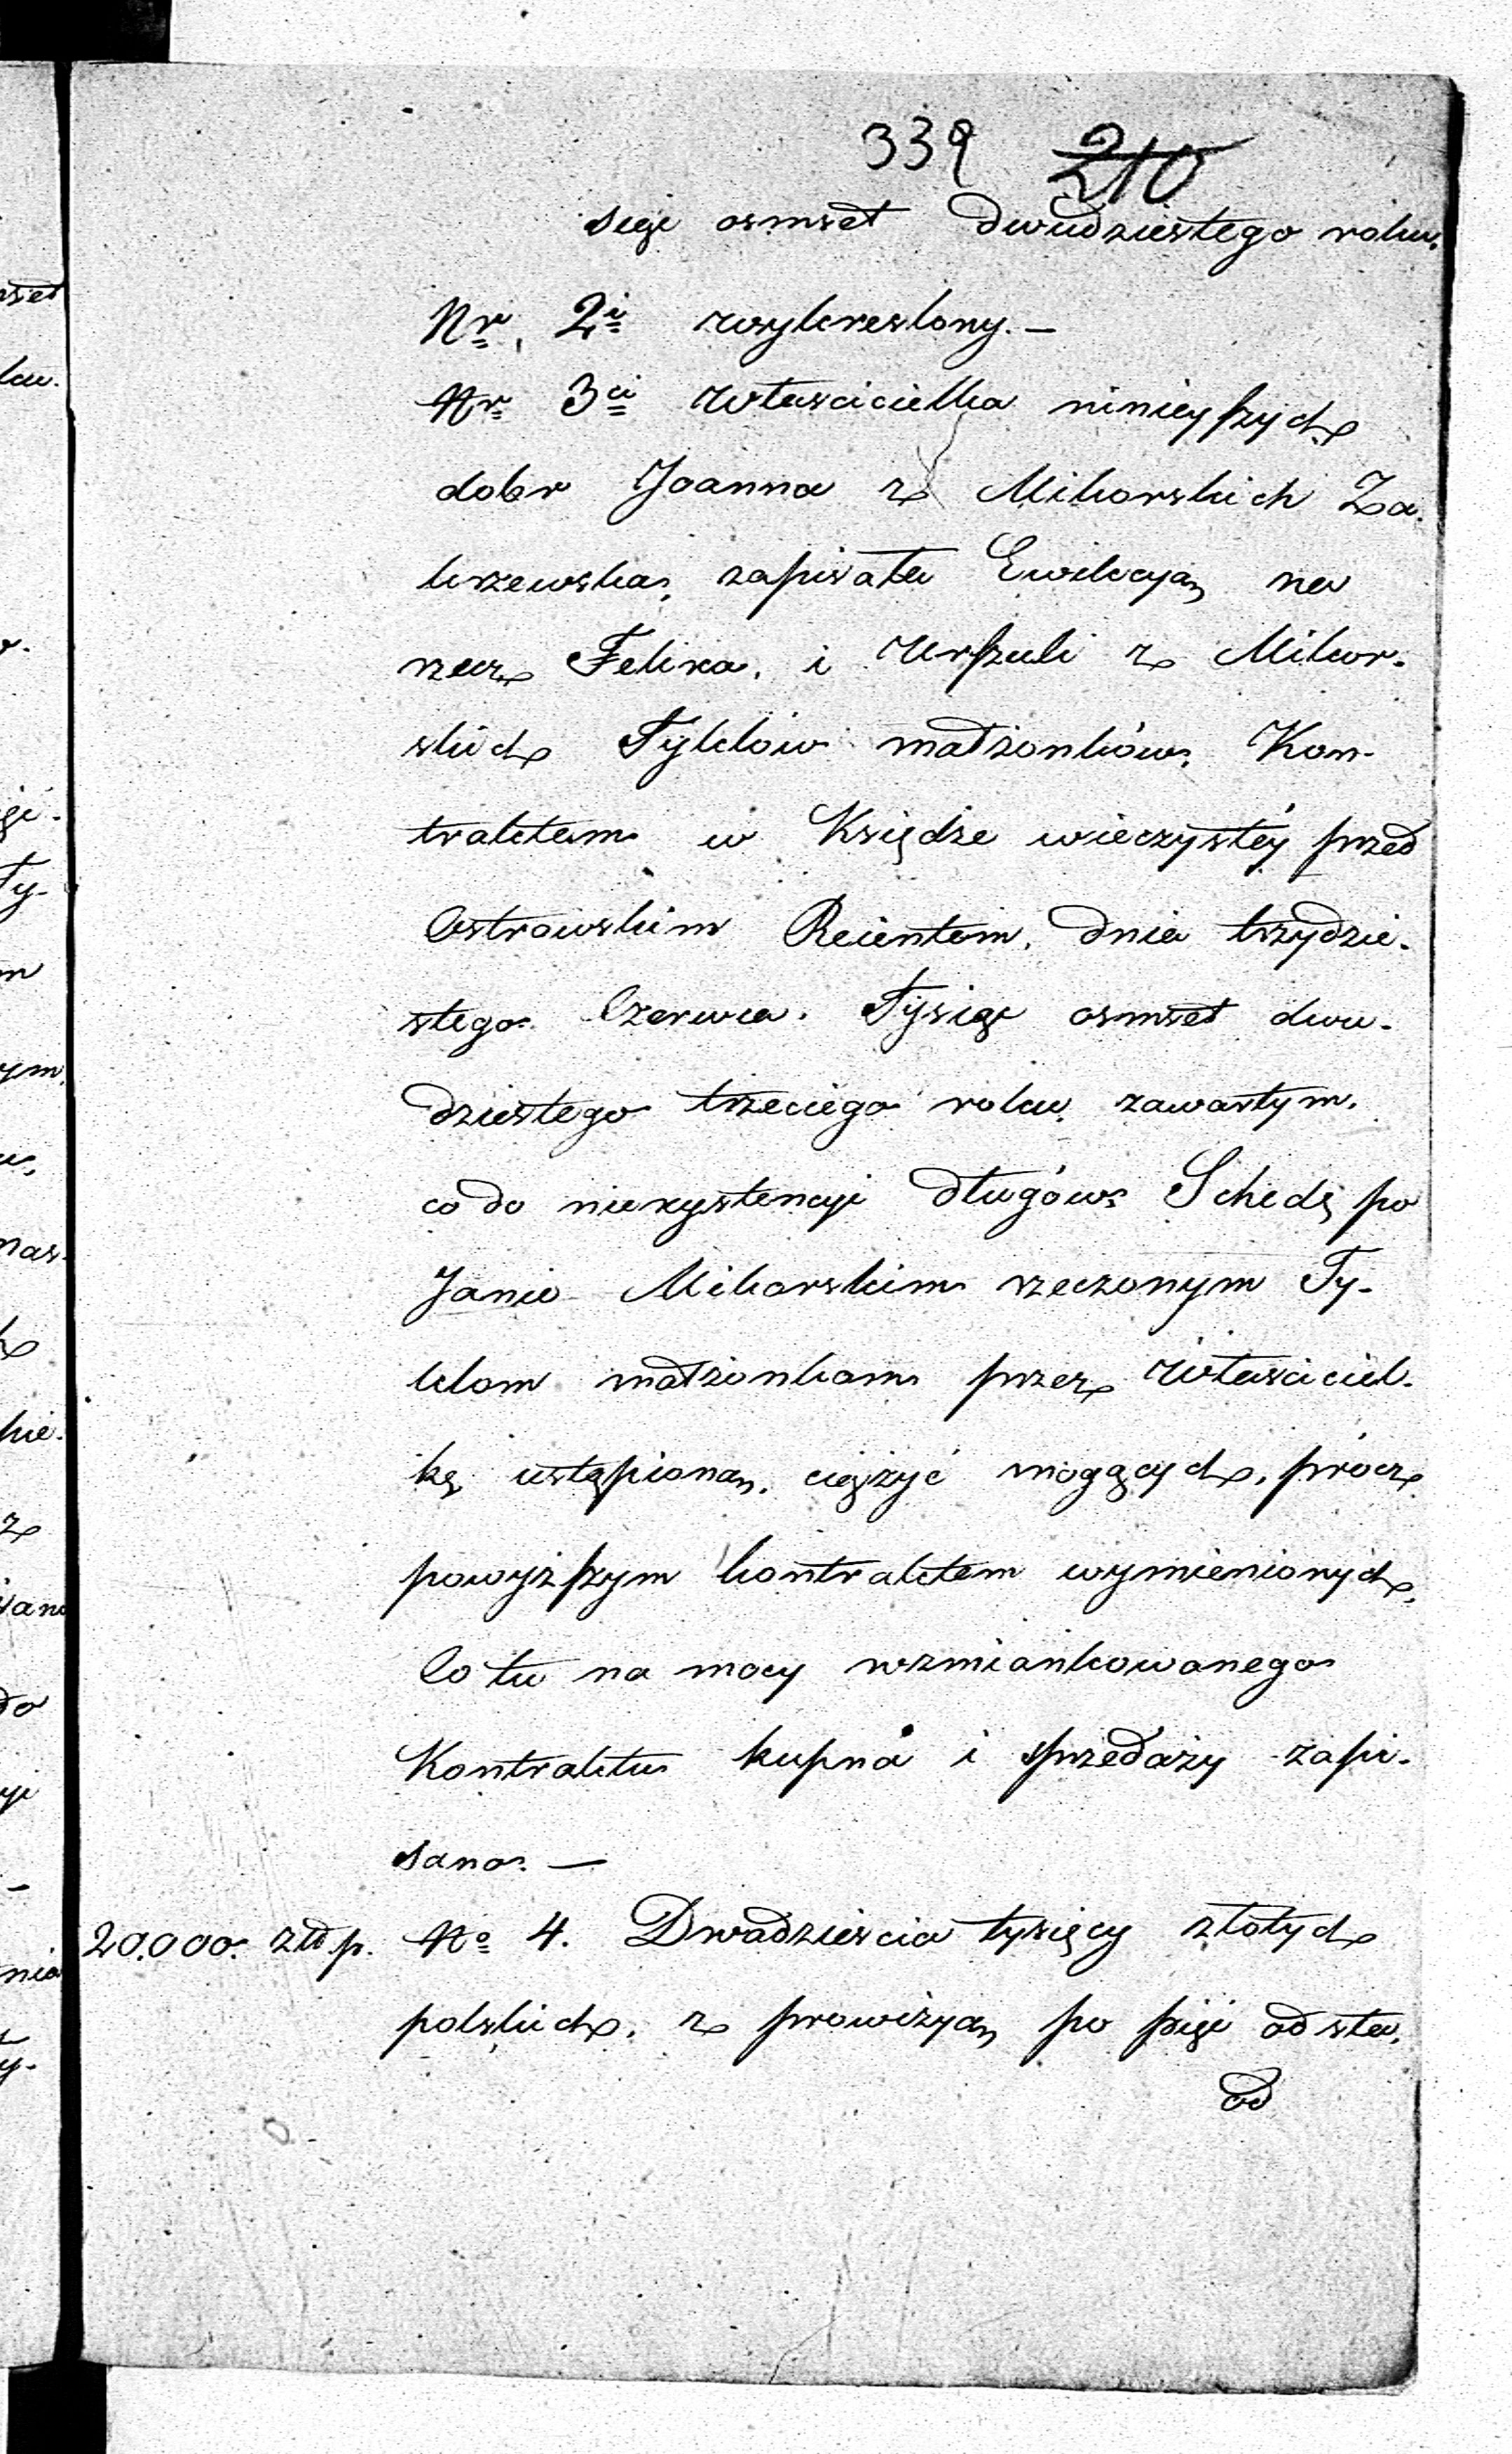 339 210
siąc osmset dwudziestego roku.
Nr. 2i wykreslony. —
Nr 3ci Włascicielka ninieyszych
dobr Joanna z Mikorskich Za-
krzewska, zapisała Ewikcyą na
rzecz Felixa, i Urszuli z Mikor-
skich Tyklów małżonków, Kon-
traktem w Księdze wieczystéy przed
Ostrowskim Reientem, dnia trzydzie-
stego Czerwca. Tysiąc osmset dwu-
dziestego trzeciego roku zawartym,
co do niexystencyi długów Schedę po
Janie Mikorskim rzeczonym Ty-
klom małżonkom przez Własciciel-
kę ustąpioną, ciążyć mogących, prócz
powyższym kontraktem wymienionych,
Co tu na mocy wzmiankowanego
Kontraktu kupna i sprzedaży zapi-
sano. —
20.000. złd p. No 4. Dwadziescia tysięcy złotych
polskich, z prowizyą po pięć od sta,
od